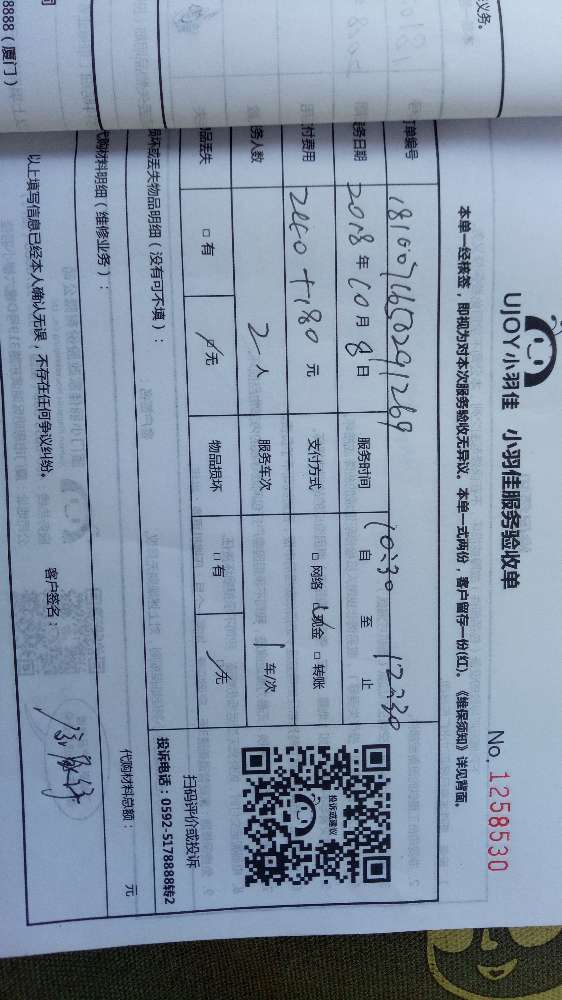 议务。
8888（厦门）
UJOY小羽佳 小羽佳服务验收单
No. 1258530
本单一经核签，即视为对本次服务验收无异议。本单一式两份，客户留存一份(红)。《维保须知》详见背面。
订单编号
服务日期 2018年10月8日 服务时间 10:30 自 至 12:30 止
付费用 2440+180 元 支付方式 □网络 ☑现金 □转账
务人数 2人 服务车次 1车/次
品丢失 □有 ☑无 物品损坏 □有 ☑无
投诉或建议
扫码评价或投诉
投诉电话：0592-5178888转2
损坏或丢失物品明细（没有可不填）：
代购材料明细（维修业务）：
代购材料总额： 元
以上填写信息已经本人确认无误，不存在任何争议纠纷。 客户签名：